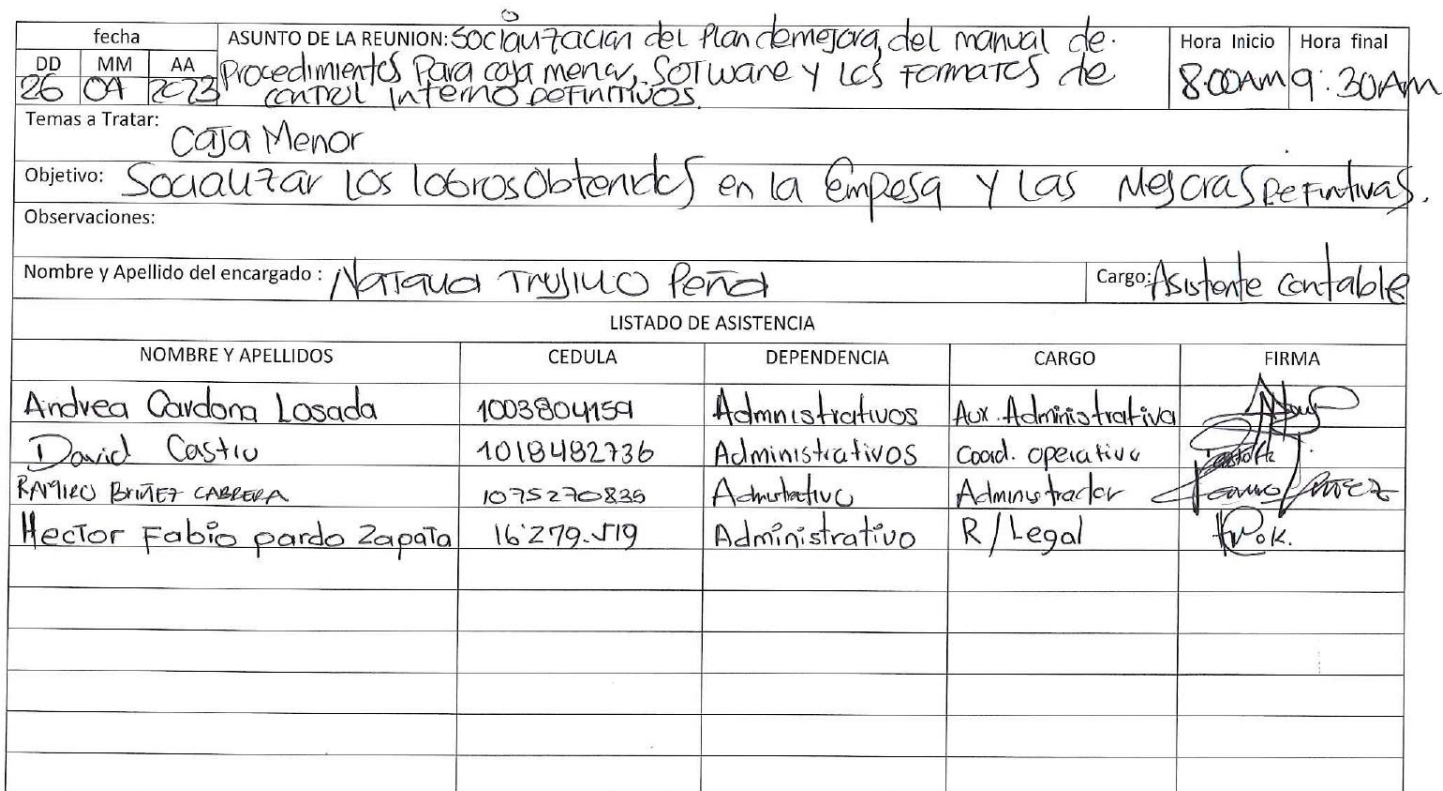 fecha ASUNTO DE LA REUNION: Socialización del Plan de mejora, del manual de. Hora Inicio Hora final
DD MM AA Procedimientos Para caja menor, SOTWare Y Los FormaTos de
26 04 2023 control Interno Definitivos. 8:00AM 9:30AM
Temas a Tratar: Caja Menor
Objetivo: Socializar Los loGros Obtenidos en la Empesa Y Las Mejoras Definitivas.
Observaciones:
Nombre y Apellido del encargado : Natalia Trujillo Peña Cargo: Asistente Contable
LISTADO DE ASISTENCIA
NOMBRE Y APELLIDOS CEDULA DEPENDENCIA CARGO FIRMA
Andrea Cardona Losada 1003804159 Admnistrativos Aux. Administrativa
David Castro 1018482736 Administrativos Coord. operativo
RAMIRO BRIÑEZ CABRERA 1075270835 Administrador
Hector Fabio pardo Zapata 16'279.519 Administrativo R/Legal